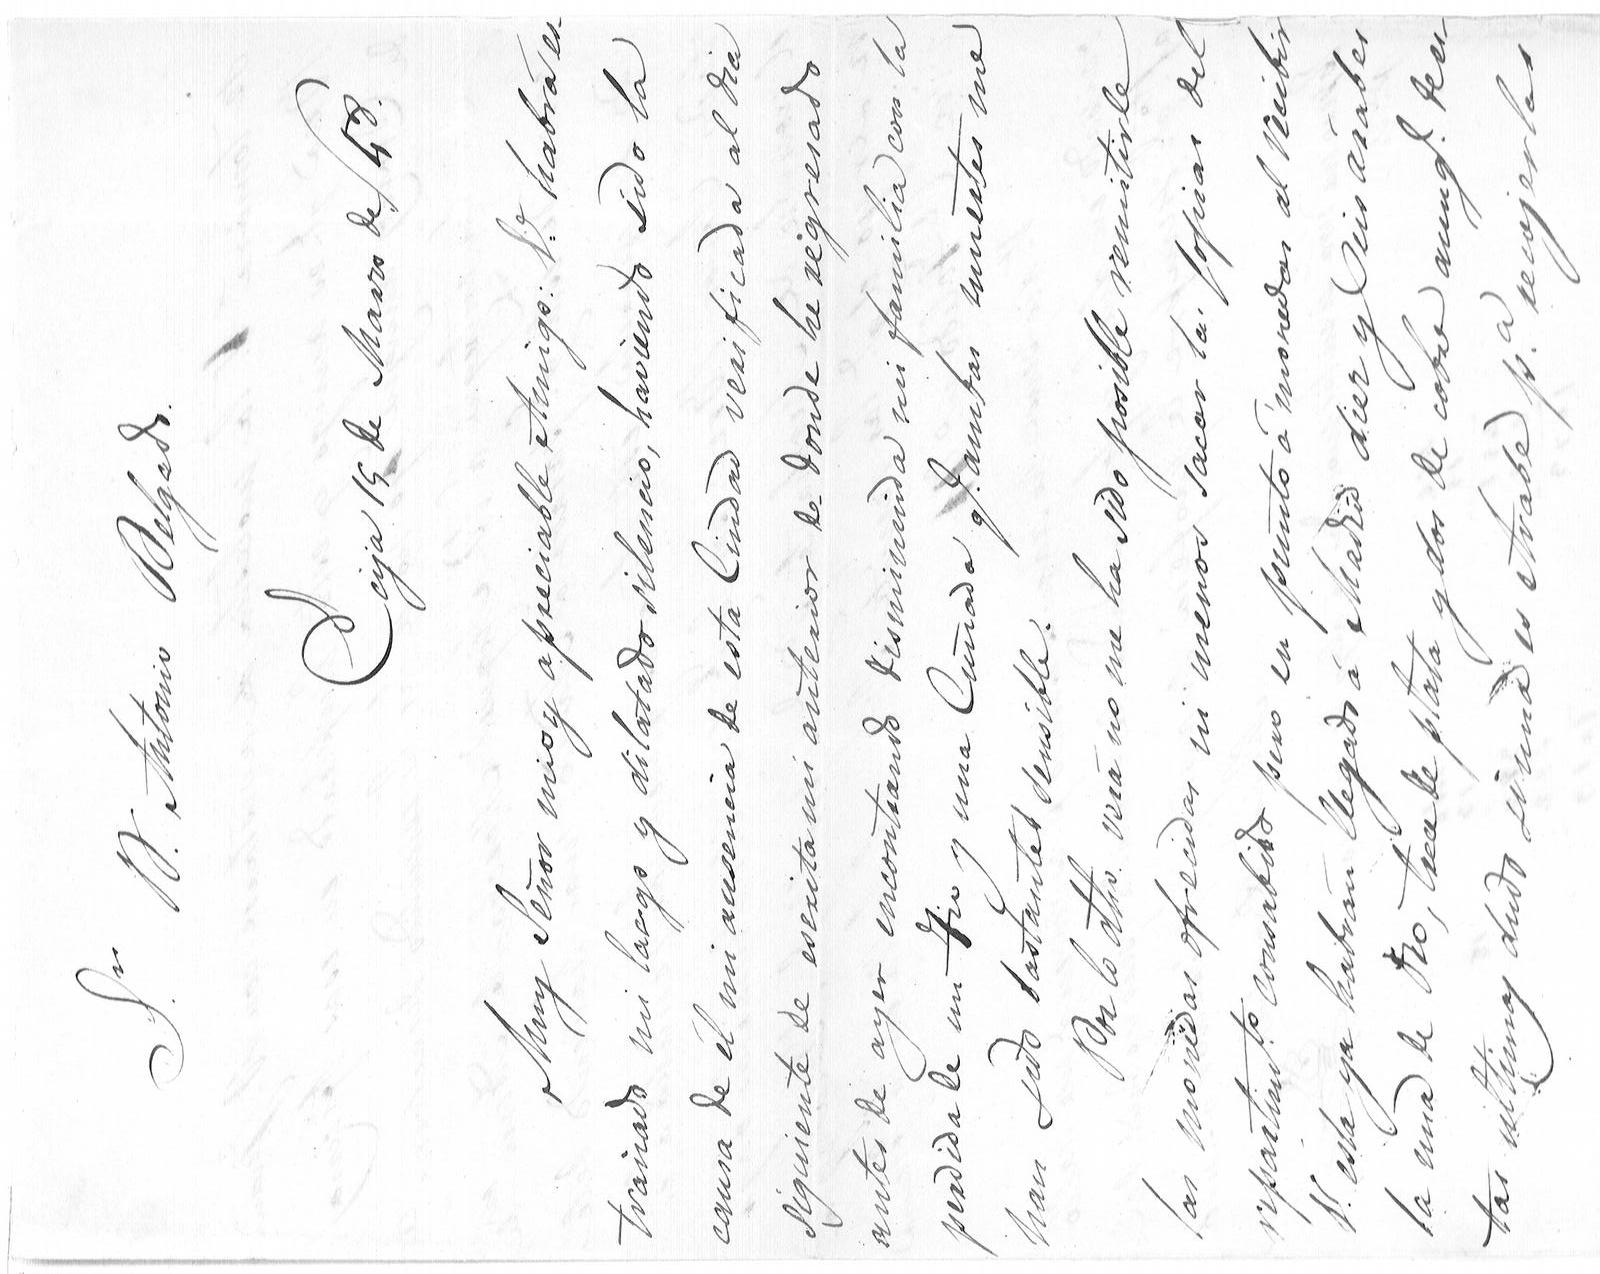 Sr. D. Antonio Delgado.
Ecija 15 de Marzo de/48.
Muy Señor mio y apreciable Amigo: Vd. habrá es-
trañado mi largo y dilatado silencio, haviendo sido la
causa de él mi ausencia de esta Ciudad verificada al dia
siguiente de escrita mi anterior de donde he regresado
antes de ayer encontrando disminuida mi familia con la
perdida de un Tio y una Cuñada q. ambas muertes me
han sido bastantes sensible.
Por lo dho. verá no me ha sido posible remitirle
las monedas ofrecidas ni menos sacar las copias del
repartimto. consabido pero en punto á monedas al recibir
V. esta ya habrán llegado á Madrid diez y seis arabes
la una de Oro, trece de plata y dos de cobre aunq. de es-
tas ultimas dudo si una es Arabe pa. recojerlas